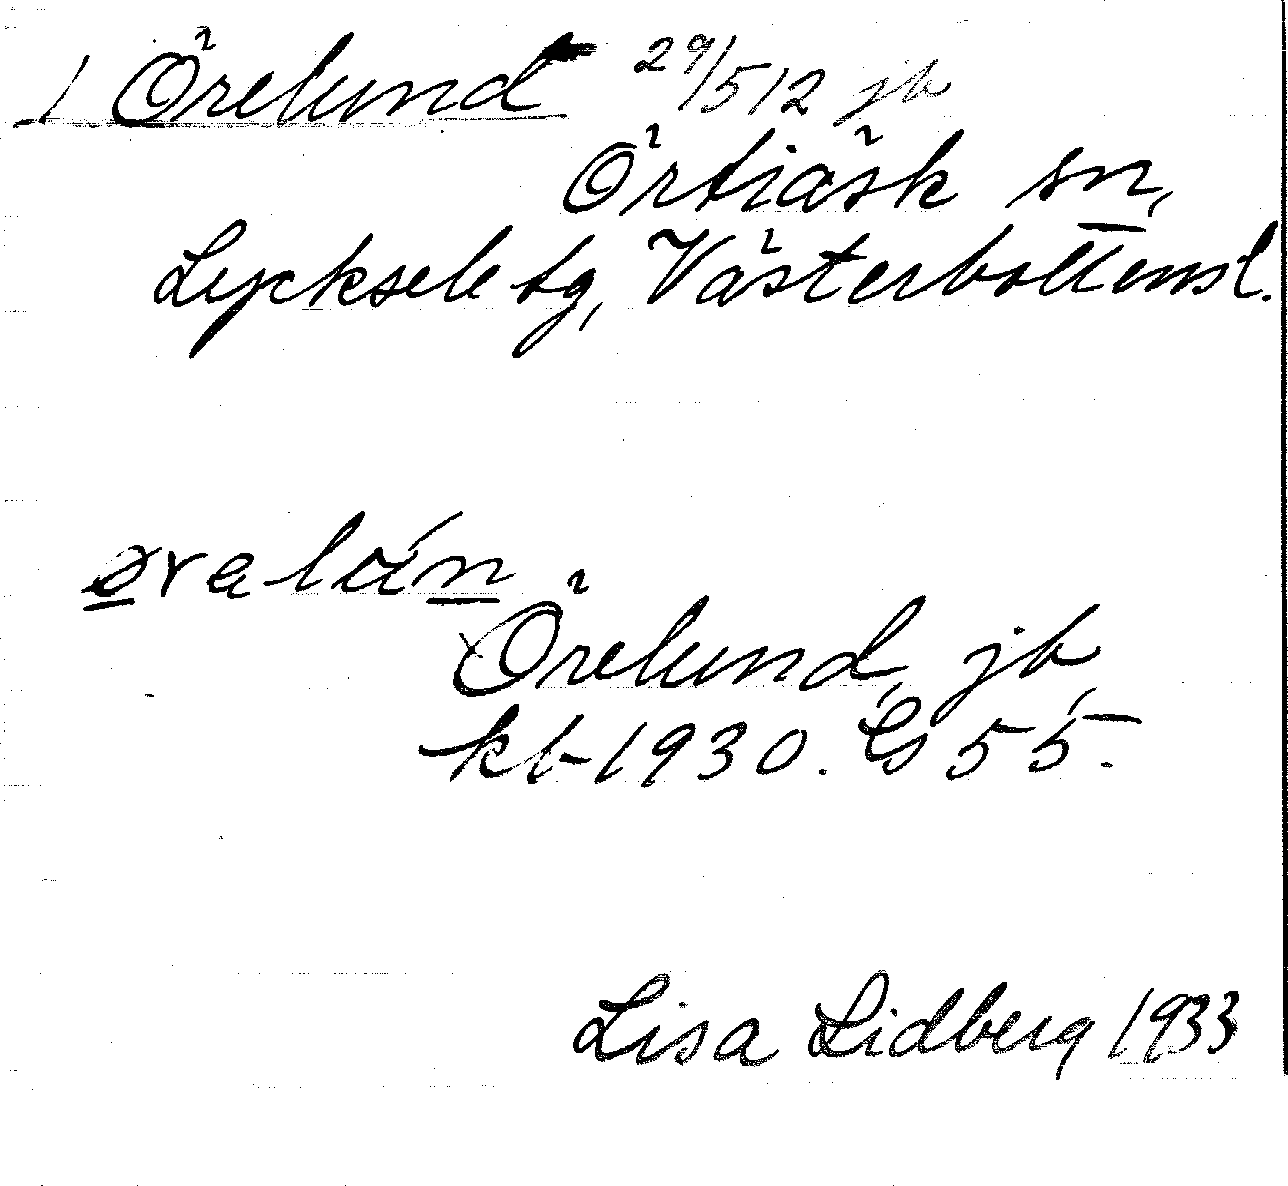 1 Örelund 29/5 12 jb
Örträsk sn,
Lycksele tg, Västerbottensl.
Örelund, jb,
kb 1930. Gs 55.
Lisa Lidberg 1933